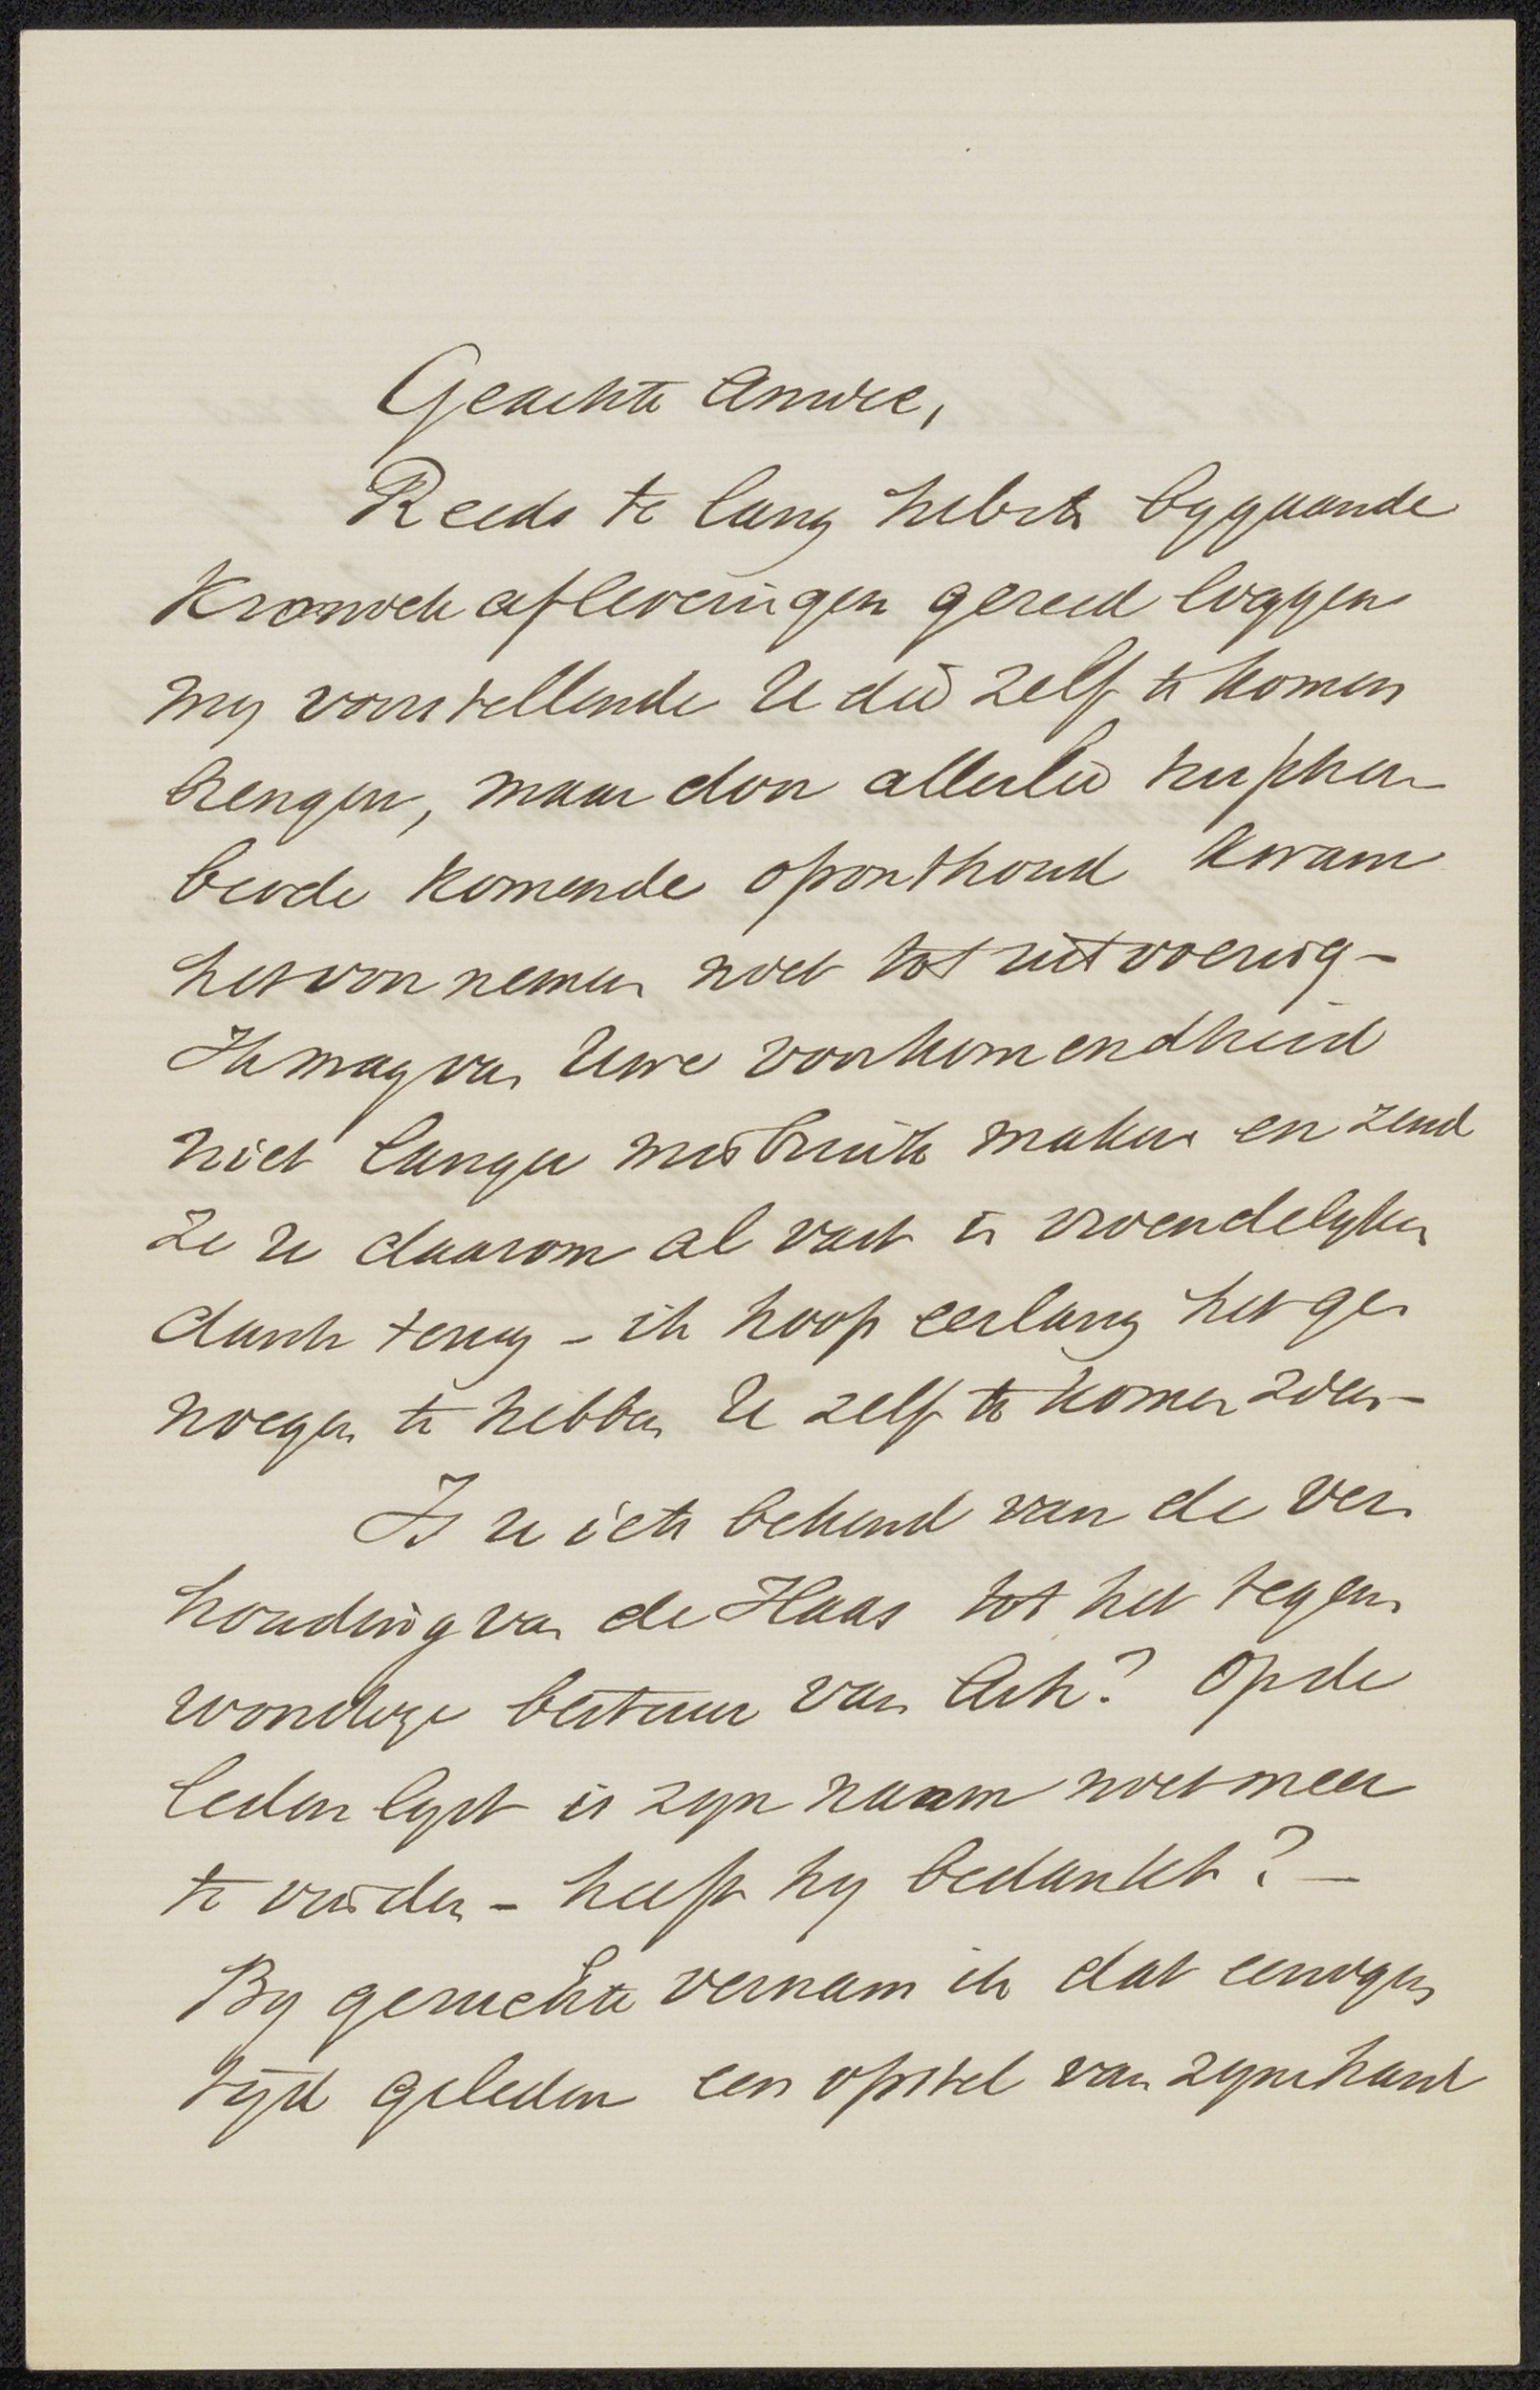 Geachte Amice,
Reeds te lang heb ik bygaande
Kroniek afleveringen gereed liggen
my voorstellende U die zelf te komen
brengen, maar door allerlei tusschen
beide komende oponthoud kwam
het voornemen niet tot uitvoering –
Ik mag van Uwe voorkomendheid
niet langer misbruik maken en zend
ze U daarom al vast in vriendelyken
dank terug – ik hoop eerlang het ge
noegen te hebben U zelf te komen zien –
Is U iets bekend van de ver
houding van de Haas tot het tegen
woordige bestuur van Arti? Op de
ledenlyst is zyn naam niet meer
te vinden – heeft hy bedankt? –
By geruchte vernam ik dat eenigen
tyd geleden een opstel van zyn hand